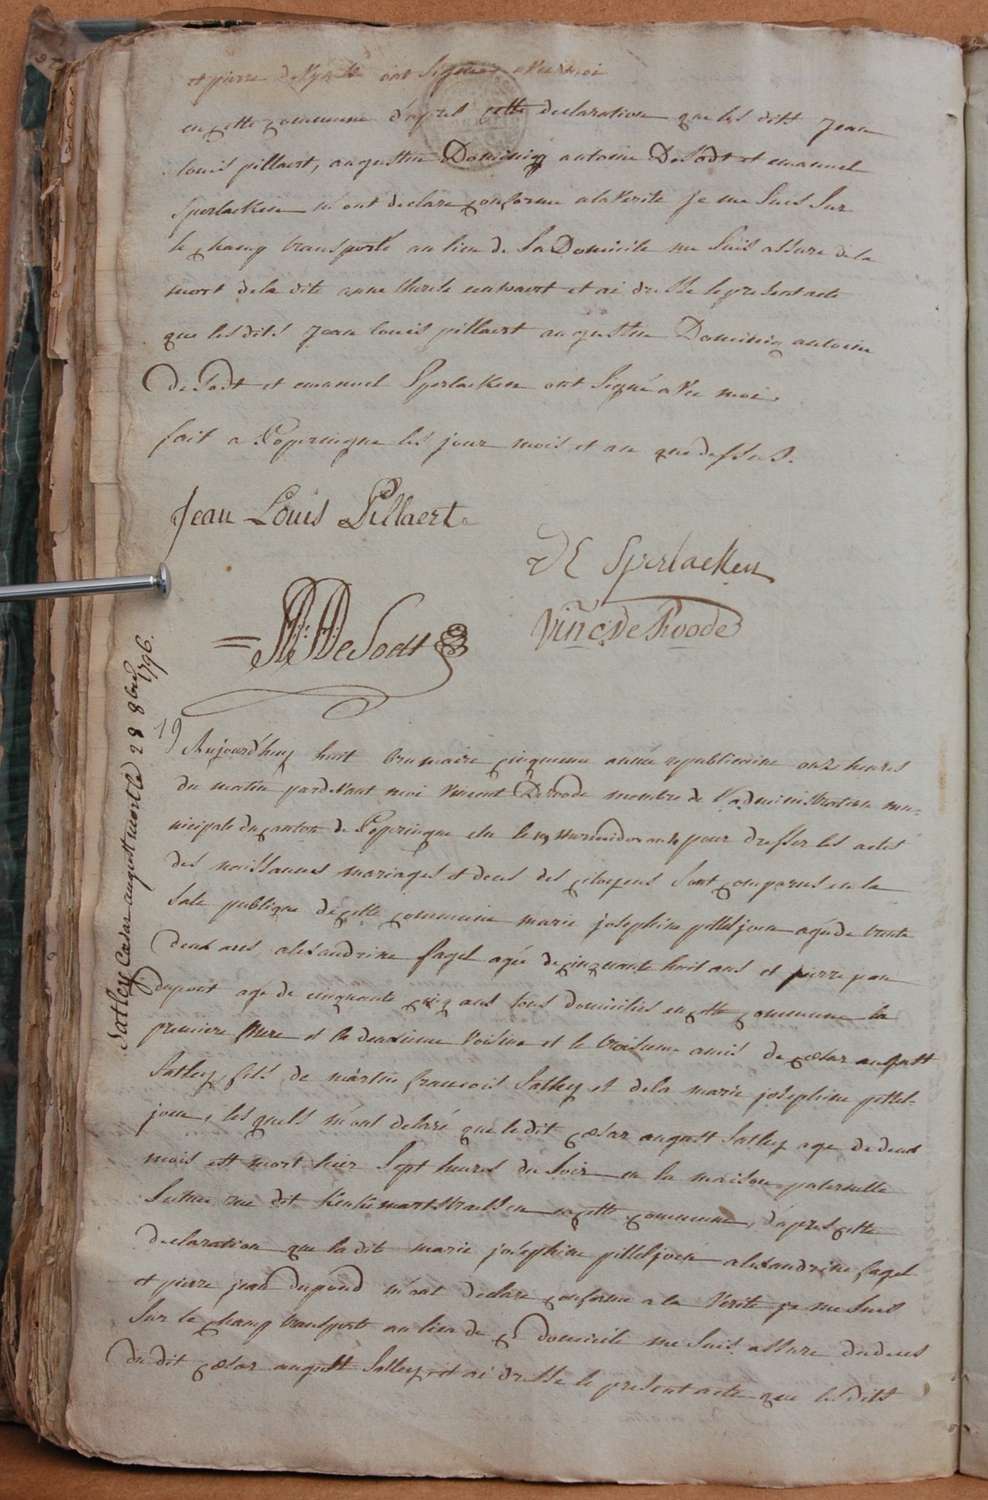 et pierre ont signé avec moi
en cette commune d'apres cette declaration que les dits Jean
louis pillaert, augustin Dominiq antoine DeSodt et emanuel
Sperlaeken m'ont declare conforme a la verite je me suis sur
le champ transporté au lieu de Sa Domicile me suis assure de la
mort de la dite anne therese et ai dresse le present acte
que les dits Jean louis pillaert augustin Dominiq antoine
deSodt et emanuel Sperlaeken ont signé avec moi
fait a Poperingue les jour mois et an que dessus.
Jean Louis Pillaert
DE Sperlaeken
DeSodt
Vinc. De Roode
Satley Cæsar august mort le 28 8bre 1796.
19 Aujourd'huy huit brumaire cinquieme année republicaine onze heures
du matin pardevant moi Vincent Deroode membre de l'administration mu-
nicipale du canton de Poperingue elu le 19 pour dresser les actes
des naissances mariages et deces des citoyens sont comparus en la
sale publique de cette commune marie josephine pilleljoen agée de trente
deux ans, alexandrine fagel agée de cinquante huit ans et pierre jean
dupont age de cinquante cinq ans tous domicilies en cette commune la
premiere mere et la deuxieme voisine et le troisieme amis de cæsar august
Satley, fils de martin francois Satley et de la marie josephine pillel-
joen, les quels m'ont declaré que le dit cæsar august Satley age de deux
mois est mort hier sept heures du soir en la maison paternelle
situee rue dit en cette commune, d'apres cette
declaration que la dite marie josephine pilleljoen alexandrine fagel
et pierre jean dupond m'ont declare conforme a la verite je me suis
sur le champ transporte au lieu de ce domicile me suis assure du deces
du dit cæsar august Satley, et ai dresse le present acte que les dits